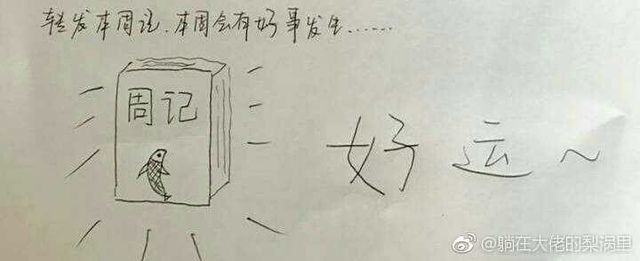 转发本周记.本周会有好事发生……
周记
好运~
@躺在大佬的梨涡里